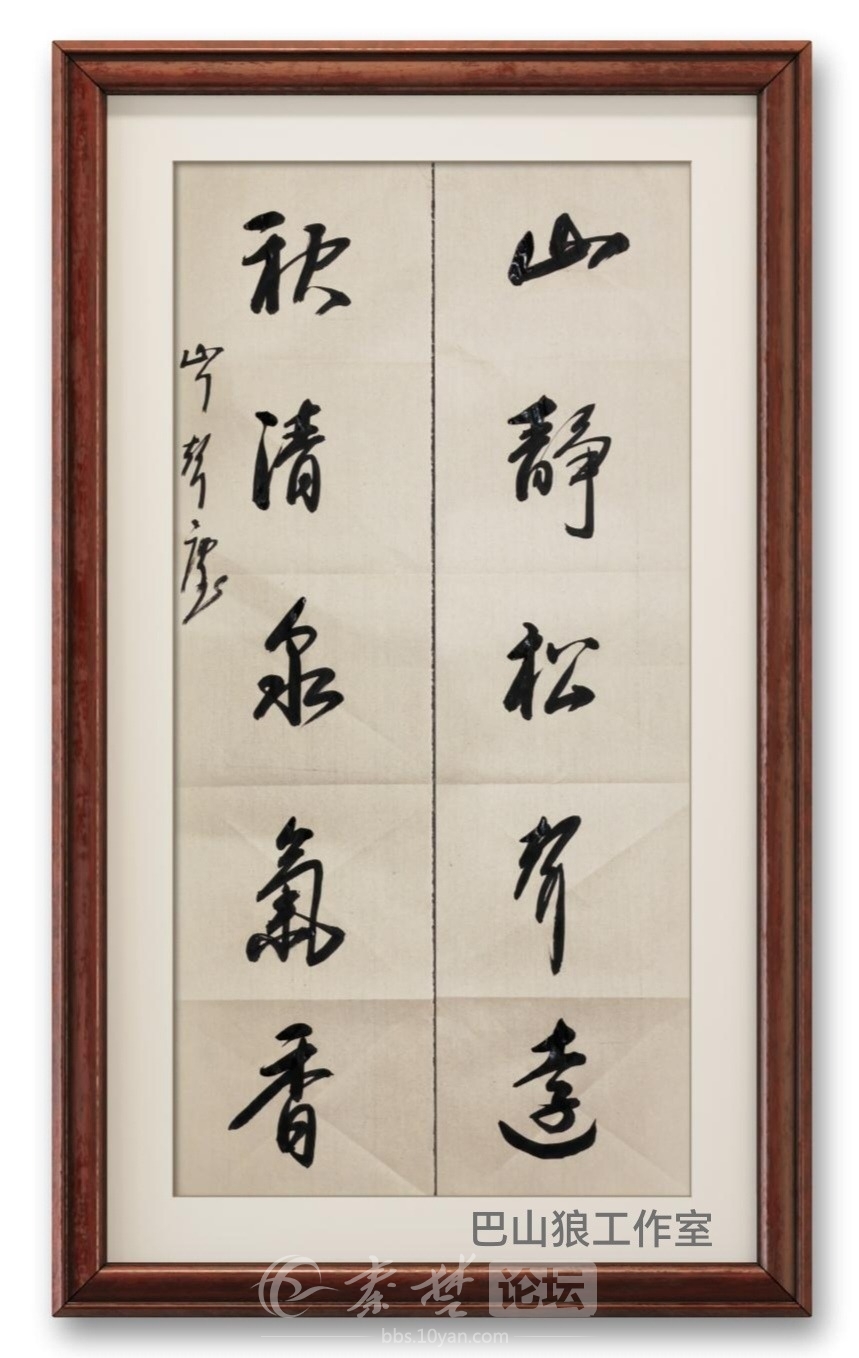 山靜松聲遠
秋清泉氣香
巴山狼工作室
秦楚论坛
bbs.10yan.com